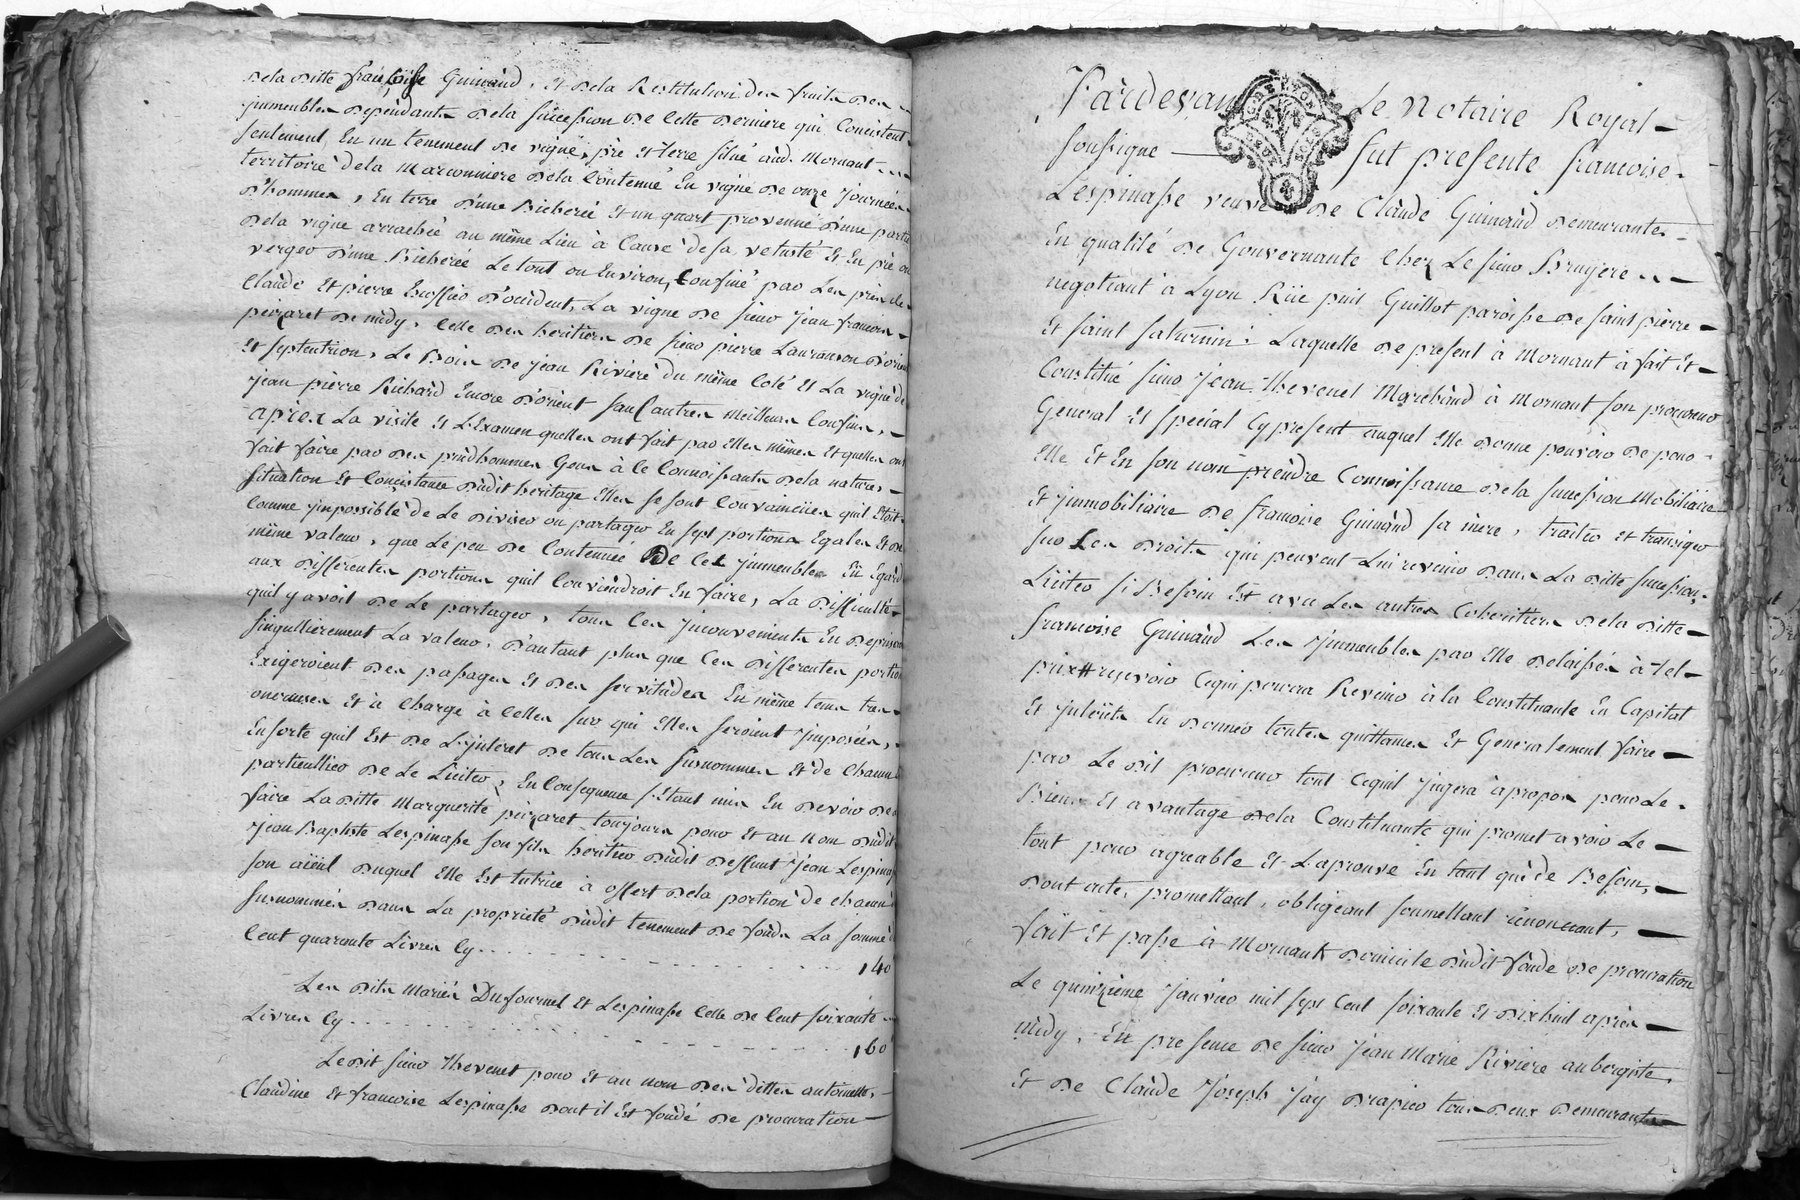 dela ditte françoise Guinand, et dela Restitution des fruits des
jmmeubles dépéndants dela succession de Cette derniere qui Concistent
seulement En un tenement de vigne, pré et terre situé aud. Mornant
territoire dela Marconniere dela Contenue En vigne de onze Journées
d'hommes, En terre d'une Bicherée et un quart provenue d'une partie
dela vigne arrachée au même Lieu à Cause de sa vetusté Et En pré ou
verger d'une Bicherée Le tout ou Environ, Confiné par Les prés de
Claude et pierre d'occident, La vigne de sieur Jean françois
peizaret de midy, Celle des heritiers de sieur pierre Lauranson d'orient
et septentrion, Le Bois de Jean Riviere du même Coté et La vigne de
Jean pierre Richard Encore d'orient sauf autres meilleurs Confins,
après La visite et L'Examen quelles ont fait par Elles mêmes et quelles ont
fait faire par des prudhommes Gens à ce Connoissants dela nature,
situation et Concistance dudit heritage Elles se sont Convaincües quil Etoit
Comme jmpossible de Le diviser ou partager En sept portions Egales et de
même valeur, que Le peu de Contenue de Ces jmmeubles Eu Egard
aux differentes portions quil Conviendroit En faire, La difficulté
quil y avoit de Le partager, tous Ces jnconvenients En
singullierement La valeur, d'autant plus que Ces differentes portions
Exigeroient des passages et des servitudes En même tems tres
onereuses et à Charge à Celles sur qui Elles seroient jmposées,
Ensorte quil Est de L'jnteret de tous Les susnommés et de Chacun
particullier de Le Liciter, En Consequence s'Etant mis En devoir de
faire La ditte Marguerite peizaret toujours pour et au nom dudit
Jean Baptiste Lespinasse son fils heritier dudit deffunt Jean Lespinasse
son aïeul duquel Elle Est tutrice à offert dela portion de chacun
susnommés dans La proprieté dudit tenement de fonds La somme de
Cent quarante Livres Cy . . . . . . . . . . 140
Les dits mariés Dufournel et Lespinasse Celle de Cent soixante
Livres Cy . . . . . . . . . . 160
Ledit sieur Thevenet pour et au nom des dittes antoinette,
Claudine et francoise Lespinasse dont il Est fondé de procuration
Pardevant Le Notaire Royal
soussigné — fut presente francoise
Lespinasse veuve de Claude Guinand demeurante
En qualité de Gouvernante Chez Le sieur Bruyere
negotiant à Lyon Rüe puit Guillot paroisse de saint pierre
Et saint saturnin; Laquelle de present à Mornant à fait et
Constitué sieur Jean Thevenet Marchand à Mornant son procureur
General et special Cy present auquel Elle donne pouvoir de pour
Elle et En son nom prendre Connoissance dela succession Mobiliaire
et jmmobiliaire de francoise Guinand sa mere, traiter et transiger
sur Les droits qui peuvent Lui revenir dans La ditte succession,
Liciter si Besoin Est avec Les autres Coheritiers dela ditte
francoise Guinand Les jmmeubles par Elle delaissés à tel
prix recevoir Cequi pourra Revenir à la Constituante En Capital
et jnterêts En donner toutes quittances et Generalement faire
par Le dit procureur tout Cequil jugera à propos pour Le
Bien et avantage dela Constituante qui promet avoir Le
tout pour agreable et L'aprouve En tant que de Besoin,
dont acte, promettant, obligeant soumettant renoncant,
fait et passé à Mornant domicile dudit fondé de procuration
Le quinzieme Janvier mil sept Cent soixante et dixhuit après
midy, En presence de sieur Jean Marie Riviere aubergiste,
et de Claude Joseph Jay drapier tous deux demeurants